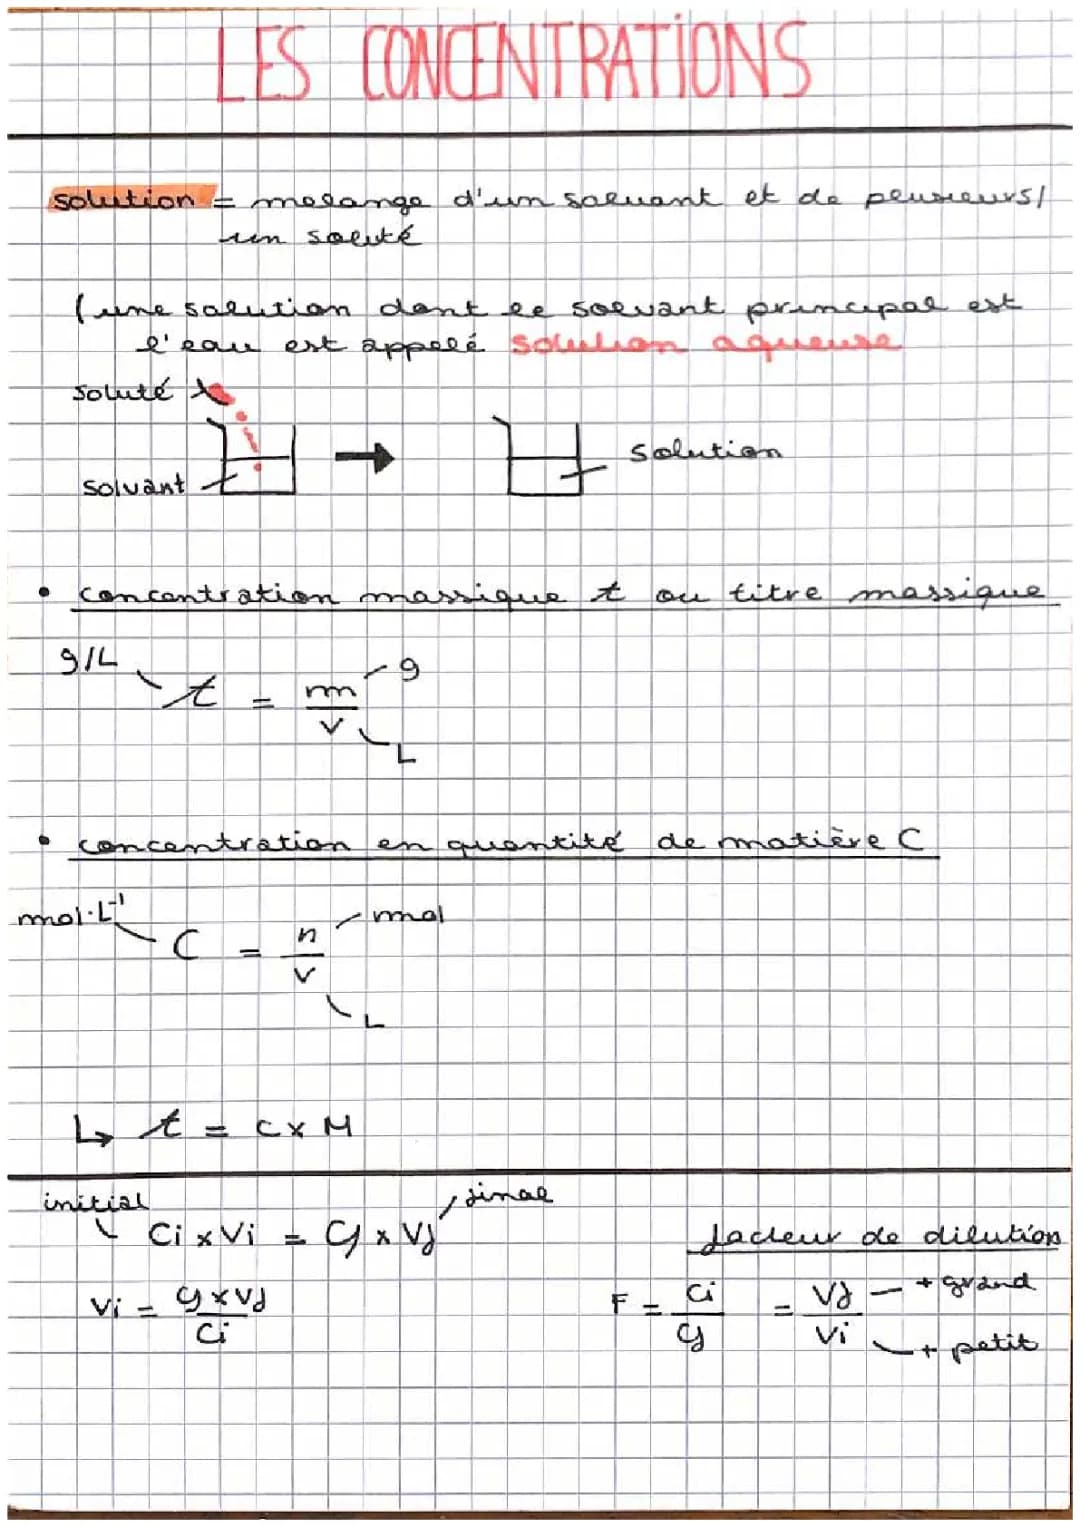 LES CONCENTRATIONS
solution = melange d'un solvant et de plusieurs/
un soluté
(une solution dont le solvant principal est
l'eau est appelé solution aqueuse
soluté
solvant
solution
• concentration massique t ou titre massique
g/L
t = m/V
g
L
• concentration en quantité de matière C
mol·L⁻¹
C = n/V
mol
L
↳ t = C x M
initial
final
Ci x Vi = Cf x Vf
facteur de dilution
Vi = Cf x Vf / Ci
F = Ci/Cf = Vf/Vi
+ grand
+ petit